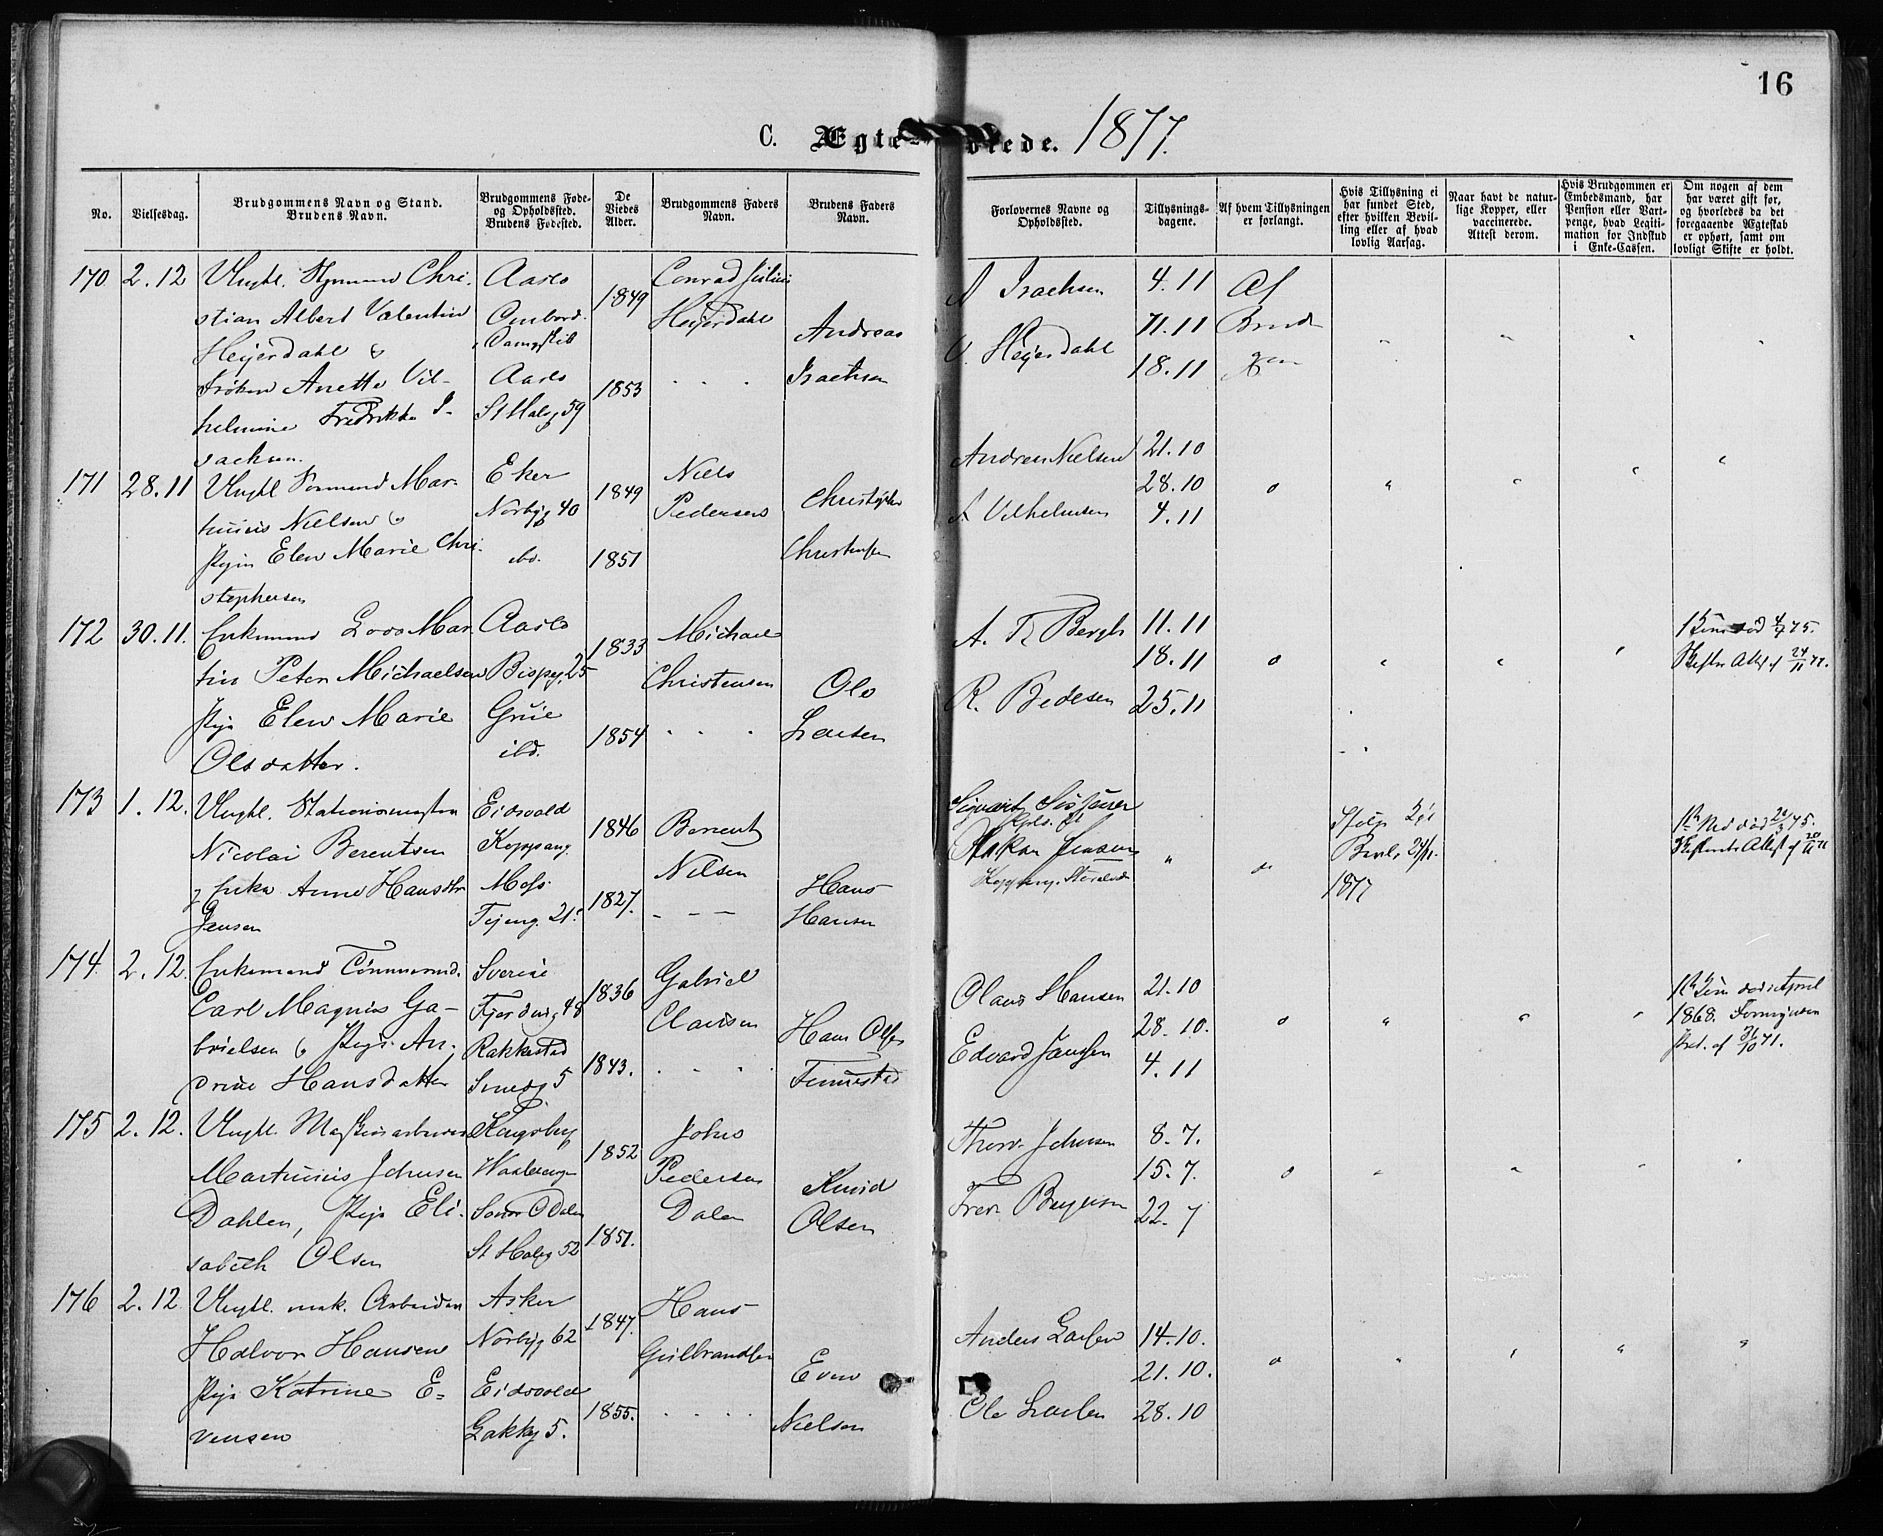 16
C. Ægte viede. 1877.
No.
Vielsesdag.
Brudgommens Navn og Stand.
Brudens Navn.
Brudgommens Føde-
og Opholdssted.
Brudens Fødested.
De
Viedes
Alder.
Brudgommens Faders
Navn.
Brudens Faders
Navn.
Forlovernes Navne og
Opholdssted.
Tillysnings-
dagene.
Af hvem Tillysningen
er forlangt.
Hvis Tillysning ei
har fundet Sted,
efter hvilken Bevil-
ling eller af hvad
lovlig Aarsag.
Naar havt de natur-
lige Kopper, eller
vaccinerede.
Attest derom.
Hvis Brudgommen er
Embedsmand, har
Pension eller Vart-
penge, hvad Legiti-
mation for Indskud
i Enke-Cassen.
Om nogen af dem
har været gift før,
og hvorledes da det
foregaaende Ægteskab
er ophørt, samt om
lovligt Skifte er holdt.
170 2.12 Ungkl. Chri-
stian Albert Valentin
Heyerdahl &
Frøken Anette Vil-
helmine Fredrikke I-
sachsen.
Aaslo
Ombord.
Aaslo
St Halvg 59
1849
1853
Conrad Julius
Heyerdahl
Andreas
Isachsen
A Isachsen
Heyerdahl
4.11
11.11
18.11
Af
Brud
gom
171 28.11 Ungkl Formand Mar-
thinius Nielsen &
Pigen Elen Marie Chri-
stophersen
Eker
Norbyg 40
ibd.
1849
1851
Niels
Pedersen
Christopher
Christensen
Andreas Nielsen
A Vilhelmsen
21.10
28.10
4.11
o
172 30.11. Enkemand Mar-
tin Peter Michaelsen
Pige Elen Marie
Olsdatter.
Aaslo
Bispeg. 25
Grue
ibd.
1833
1854
Michael
Christensen
Ole
Larsen
A. F. Bergh
R. Pedersen
11.11
18.11
25.11
o
173 1.12. Ungkl. Stationsmester
Nicolai Berentsen
Enke Anne Hansdtr
Jensen
Eidsvold
Koppang.
Moss.
1846
1827.
Berent
Nilsen
Hans
Hansen
Sigvart
Haakon Jensen
Bevl.
1877
174. 2.12. Enkemand Tømmermd.
Carl Magnus Ga-
brielsen & Pige An-
drine Hansdatter
Sverige
Fjerding 48
Rakkestad
Smedg 5
1836
1843.
Gabriel
Clausen
Hans Olsen
Olaus Hansen
Edvard Janssen
21.10
28.10.
4.11
o
1868.
175 2.12. Ungkl. Maskinarbeider
Martinius Johnsen
Dahlen, Pige Eli-
sabeth Olsen
Kongsberg
Vaalerengen
St Halvg 52
1852
1851.
Johns
Pedersen
Dalen
Knud
Olsen
Thorv. Johnsen
8.7.
15.7.
22.7
o
176 2.12. Ungkl. mek. Arbeider
Halvor Hansen
Pige Katrine E-
vensen
Asker
Norbyg 62
Eidsvold
Lakkeg 5.
1847.
1855.
Hans
Gulbrandsen
Even
Nielsen
Anders Larsen
Ole Larsen
14.10.
21.10.
28.10
o